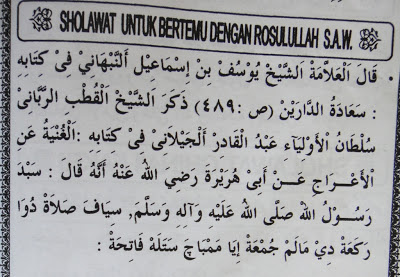 SHOLAWAT UNTUK BERTEMU DENGAN ROSULULLAH S.A.W.
• قَالَ الْعَلَّامَةُ الشَّيْخُ يُوْسُفُ بِنْ إِسْمَاعِيْلَ اَلنَّبْهَانِيْ فِىْ كِتَابِهِ
: سَعَادَةُ الدَّارَيْنْ (ص :٤٨٩) ذَكَرَ الشَّيْخُ الْقُطْبِ الرَّبَّانِىْ
سُلْطَانُ الْأَوْلِيَاءِ عَبْدُ الْقَادِرْ اَلْجَيْلَانِىْ فِىْ كِتَابِهِ :اَلْغُنْيَةُ عَنِ
الْأَعْرَاجِ عَنْ أَبِىْ هُرَيْرَةَ رَضِيَ اللهُ عَنْهُ أَنَّهُ قَالَ : سَبْدَ
رَسُوْلُ اللهِ صَلَّى اللهُ عَلَيْهِ وَآلِهِ وَسَلَّمَ, سِيَافَ صَلَاةْ دُوَا
رَكَعَةْ دِيْ مَالَمْ جُمْعَةْ إِيَا مَمْبَاچَ سَتَلَهْ فَاتِحَةْ :